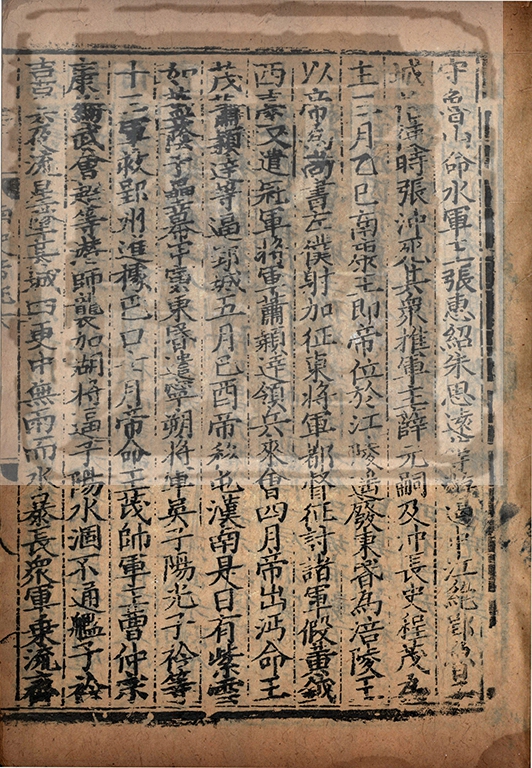 守魯山命水軍主張惠紹朱思遠等游遏中江絕郢魯
城 時張沖死其衆推軍主薛元嗣及沖長史程茂為
主三月乙巳南康王即帝位於江陵遙廢東昏為涪陵王
以帝為尚書左僕射加征東將軍都督征討諸軍假黃鉞
西臺又遣冠軍將軍蕭穎達領兵來會四月帝出沔命王
茂蕭穎達等逼郢城五月己酉帝移屯漢南是日有紫雲
如蓋蔭于壘幕甲寅東昏遣寧朔將軍吳子陽光子衿等
十三軍救郢州進據巴口七月帝命王茂帥軍主曹仲宗
康絢武會超等潛師襲加湖將逼子陽水涸不通艦子衿
喜其夜流星墜其城四更中無雨而水暴長衆軍乘流齊